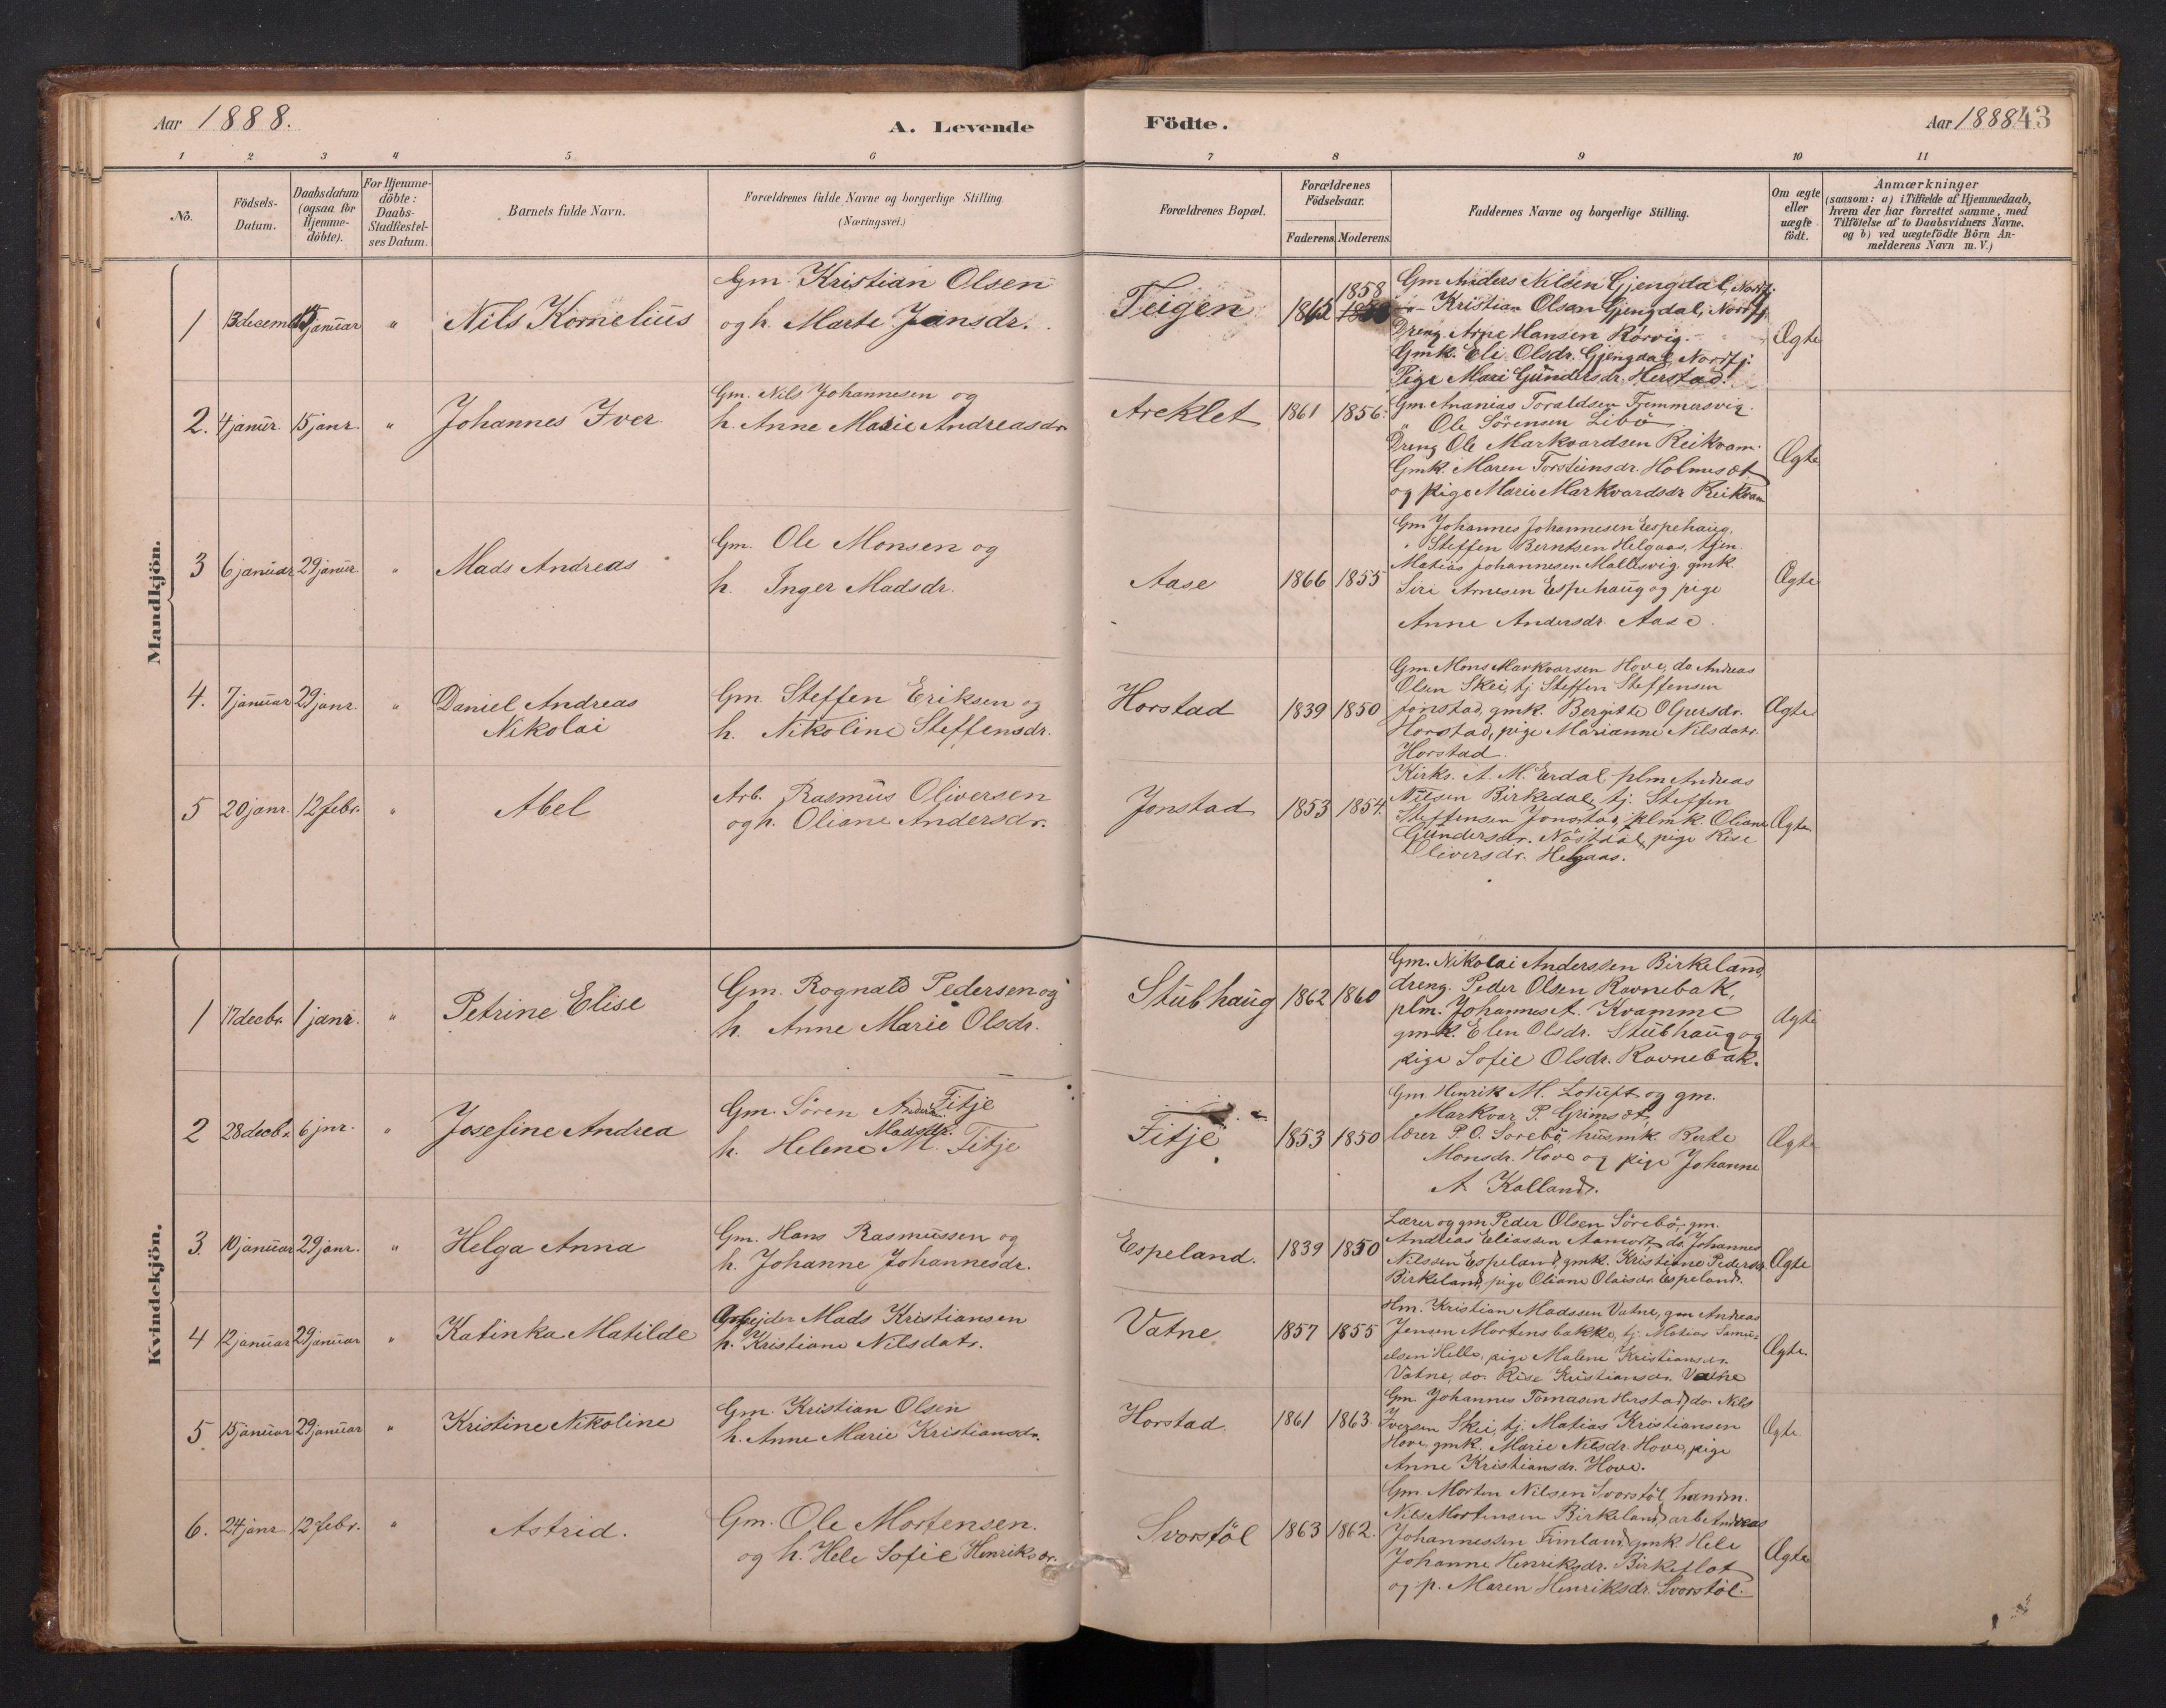 Aar 1888.
A. Levende
Födte.
Aar 1888
43
1 2 3 4 5 6 7 8 9 10 11
No.
Födsels-
Datum.
Daabsdatum
(ogsaa for
Hjemme-
döbte).
For Hjemme-
döbte:
Daabs-
Stadfæstel-
ses Datum.
Barnets fulde Navn.
Forældrenes fulde Navne og borgerlige Stilling.
(Næringsvei.)
Forældrenes Bopæl.
Forældrenes
Födselsaar.
Faderens. Moderens.
Faddernes Navne og borgerlige Stilling.
Om ægte
eller
uægte
födt.
Anmærkninger
(saasom: a) i Tilfælde af Hjemmedaab,
hvem der har forrettet samme, med
Tilföielse af to Daabsvidners Navne.
og b) ved uægtefödte Börn An-
melderens Navn m.V.)
Mandkjön.
1 13 decemb januar " Nils Kornelius
Gm. Kristian Olsen
og h. Marte Jansdr.
Teigen
1858
Gm Anders Nilsen Gjengdal, Nordfj.
" Kristian Olsen Gjengdal, Nordfj.
Dreng Arne Hansen Rörvig.
Gmk. Eli Olsdr. Gjengdal, Nordfj.
Pige Mari Gundersdr. Herstad.
Ægte
2. 4 januar. 15 janr. " Johannes Iver
Gm. Nils Johannesen og
h. Anne Marie Andreasdr.
Areklet 1861 1856.
Gm Ananias Toraldsen Tremmersvig.
" Ole Sörensen Libö
Dreng Ole Markvardsen Reikvam.
Gmk. Maren Torsteinsdr. Holmesæt
og pige Marie Markvardsdr Reikvam
Ægte
3 6 januar 29 januar. " Mads Andreas
Gm. Ole Monsen og
h. Inger Madsdr.
Aase 1866 1855
Gm Johannes Johannesen Espehaug,
" Steffen Berntsen Helgaas, tjen.
Matias Johannesen Mallesvig gmk.
Siri Arnesen Espehaug og pige
Anne Andersdr. Aase.
Ægte
4. 7 januar 29 janr. " Daniel Andreas
Nikolai
Gm. Steffen Eriksen og
h. Nikoline Steffensdr.
Horstad 1839 1850
Gm. Mons Markvarsen Hove, do Andreas
Olsen Skei, tj Steffen Steffensen
Jonstad, gmk. Bergitte Olpersdr.
Horstad, pige Marianne Nilsdatr.
Horstad.
Ægte
5 20 janr. 12 febr. " Abel
Arb. Rasmus Oliversen
og h. Oliane Andersdr.
Jonstad 1853 1854.
Kirks. A. M. Erdal, plm Andreas
Nilsen Birkedal, tj. Steffen
Steffensen Jonstad, plmk. Oliane
Gundersdr. Nöstdal, pige Rise
Oliversdr. Helgaas.
Ægte
Kvindekjön.
1 17 decbr. 1 janr. " Petrine Elise
Gm. Rognald Pedersen og
h. Anne Marie Olsdr.
Stubhaug 1862 1860
Gm. Nikolai Anderssen Birkeland,
dreng. Peder Olsen Ravnebak,
plm. Johannes A. Kvamme
gmk. Elen Olsdr. Stubhaug og
pige Sofie Olsdr. Ravnebak.
Ægte
2 28 decbr. 6 jnr. " Josefine Andrea
Gm. Sören Andersen Fitje
Madsdtr.
h. Helene M. Fitje
Fitje 1853 1850
Gm. Henrik M. Lotuft og gm.
Markvar P. Grimsæt,
lærer P. O. Sorebö, husmk. Berte
Monsdr. Hove og pige Johanne
A. Kalland.
Ægte
3. 10 januar 29 janr. " Helga Anna
Gm. Hans Rasmussen og
h. Johanne Johannesdr.
Espeland. 1839 1850
Lærer og gm Peder Olsen Sörebö, gm.
Andreas Eliassen Aamot, do Johannes
Nilssen Espeland, gmk. Kristiane Pedersdr.
Birkeland, pige Oliane Olaisdr. Espeland.
Ægte
4 12 januar 29 januar " Katinka Matilde
Arbeider Mads Kristiansen
h. Kristiane Nilsdatr.
Vatne 1857 1855
Hm. Kristian Madssen Vatne, gm Andreas
Jensen Mortensbakke, tj. Matias Samu-
elsen Helle, pige Malene Kristiansdr.
Vatne, do. Rise Kristiansdr. Vatne
Ægte.
5. 15 januar 29 januar " Kristine Nikoline
Gm. Kristian Olsen
h. Anne Marie Kristiansdr.
Horstad. 1861 1863.
Gm Johannes Tomasen Horstad, do Nils
Iversen Skei, tj. Matias Kristiansen
Hove, gmk. Marie Nilsdr. Hove, pige
Anne Kristiansdr. Hove.
Ægte.
6. 24 janr 12 febr. " Astrid.
Gm. Ole Mortensen.
og h. Hele Sofie Henriksdr.
Svorstöl 1863 1862.
Gm Morten Nilsen Svorstöl, handm.
Nils Mortensen Birkeland, arb Andreas
Johannessen Fimland, gmk Hele
Johanne Henriksdr. Birkeflot
og p. Maren Henriksdr. Svorstöl.
Ægte